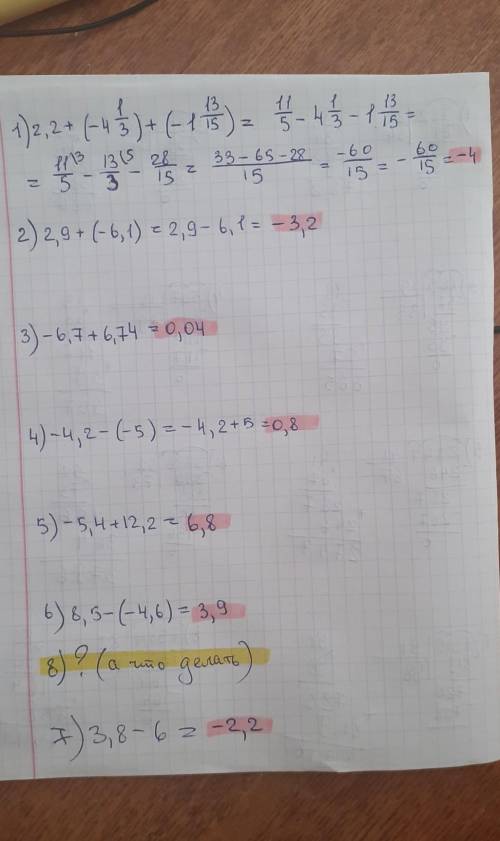 1) 2,2 + (-4 1/3) + (-1 13/15) = 11/5 - 4 1/3 - 1 13/15 =
= 11\3/5 - 13\5/3 - 28/15 = 33-65-28/15 = -60/15 = - 60/15 = -4
2) 2,9 + (-6,1) = 2,9 - 6,1 = -3,2
3) -6,7 + 6,74 = 0,04
4) -4,2 - (-5) = -4,2 + 5 = 0,8
5) -5,4 + 12,2 = 6,8
6) 8,5 - (-4,6) = 3,9
8) ? (а что делать)
7) 3,8 - 6 = -2,2